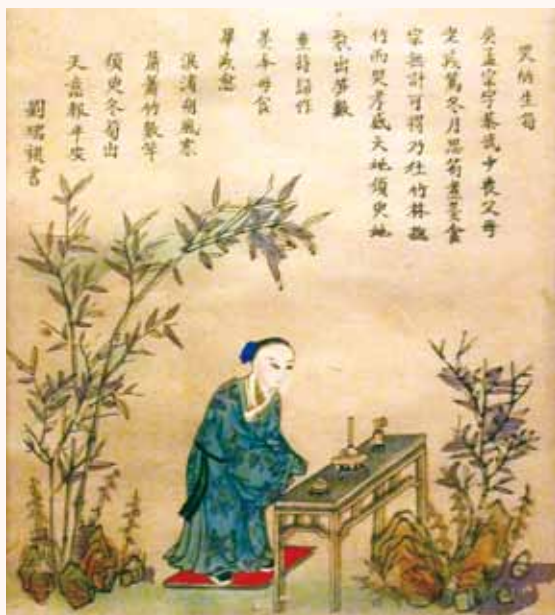 哭竹生筍
吳孟宗字恭武少喪父母
老疾篤冬月思筍煮羹食
宗無計可得乃往竹林抱
竹而哭孝感天地須臾地
裂出笋數
莖持歸作
羹奉母食
畢疾愈
淚滴朔風寒
蕭蕭竹數竿
須臾冬筍出
天意報平安
劉書